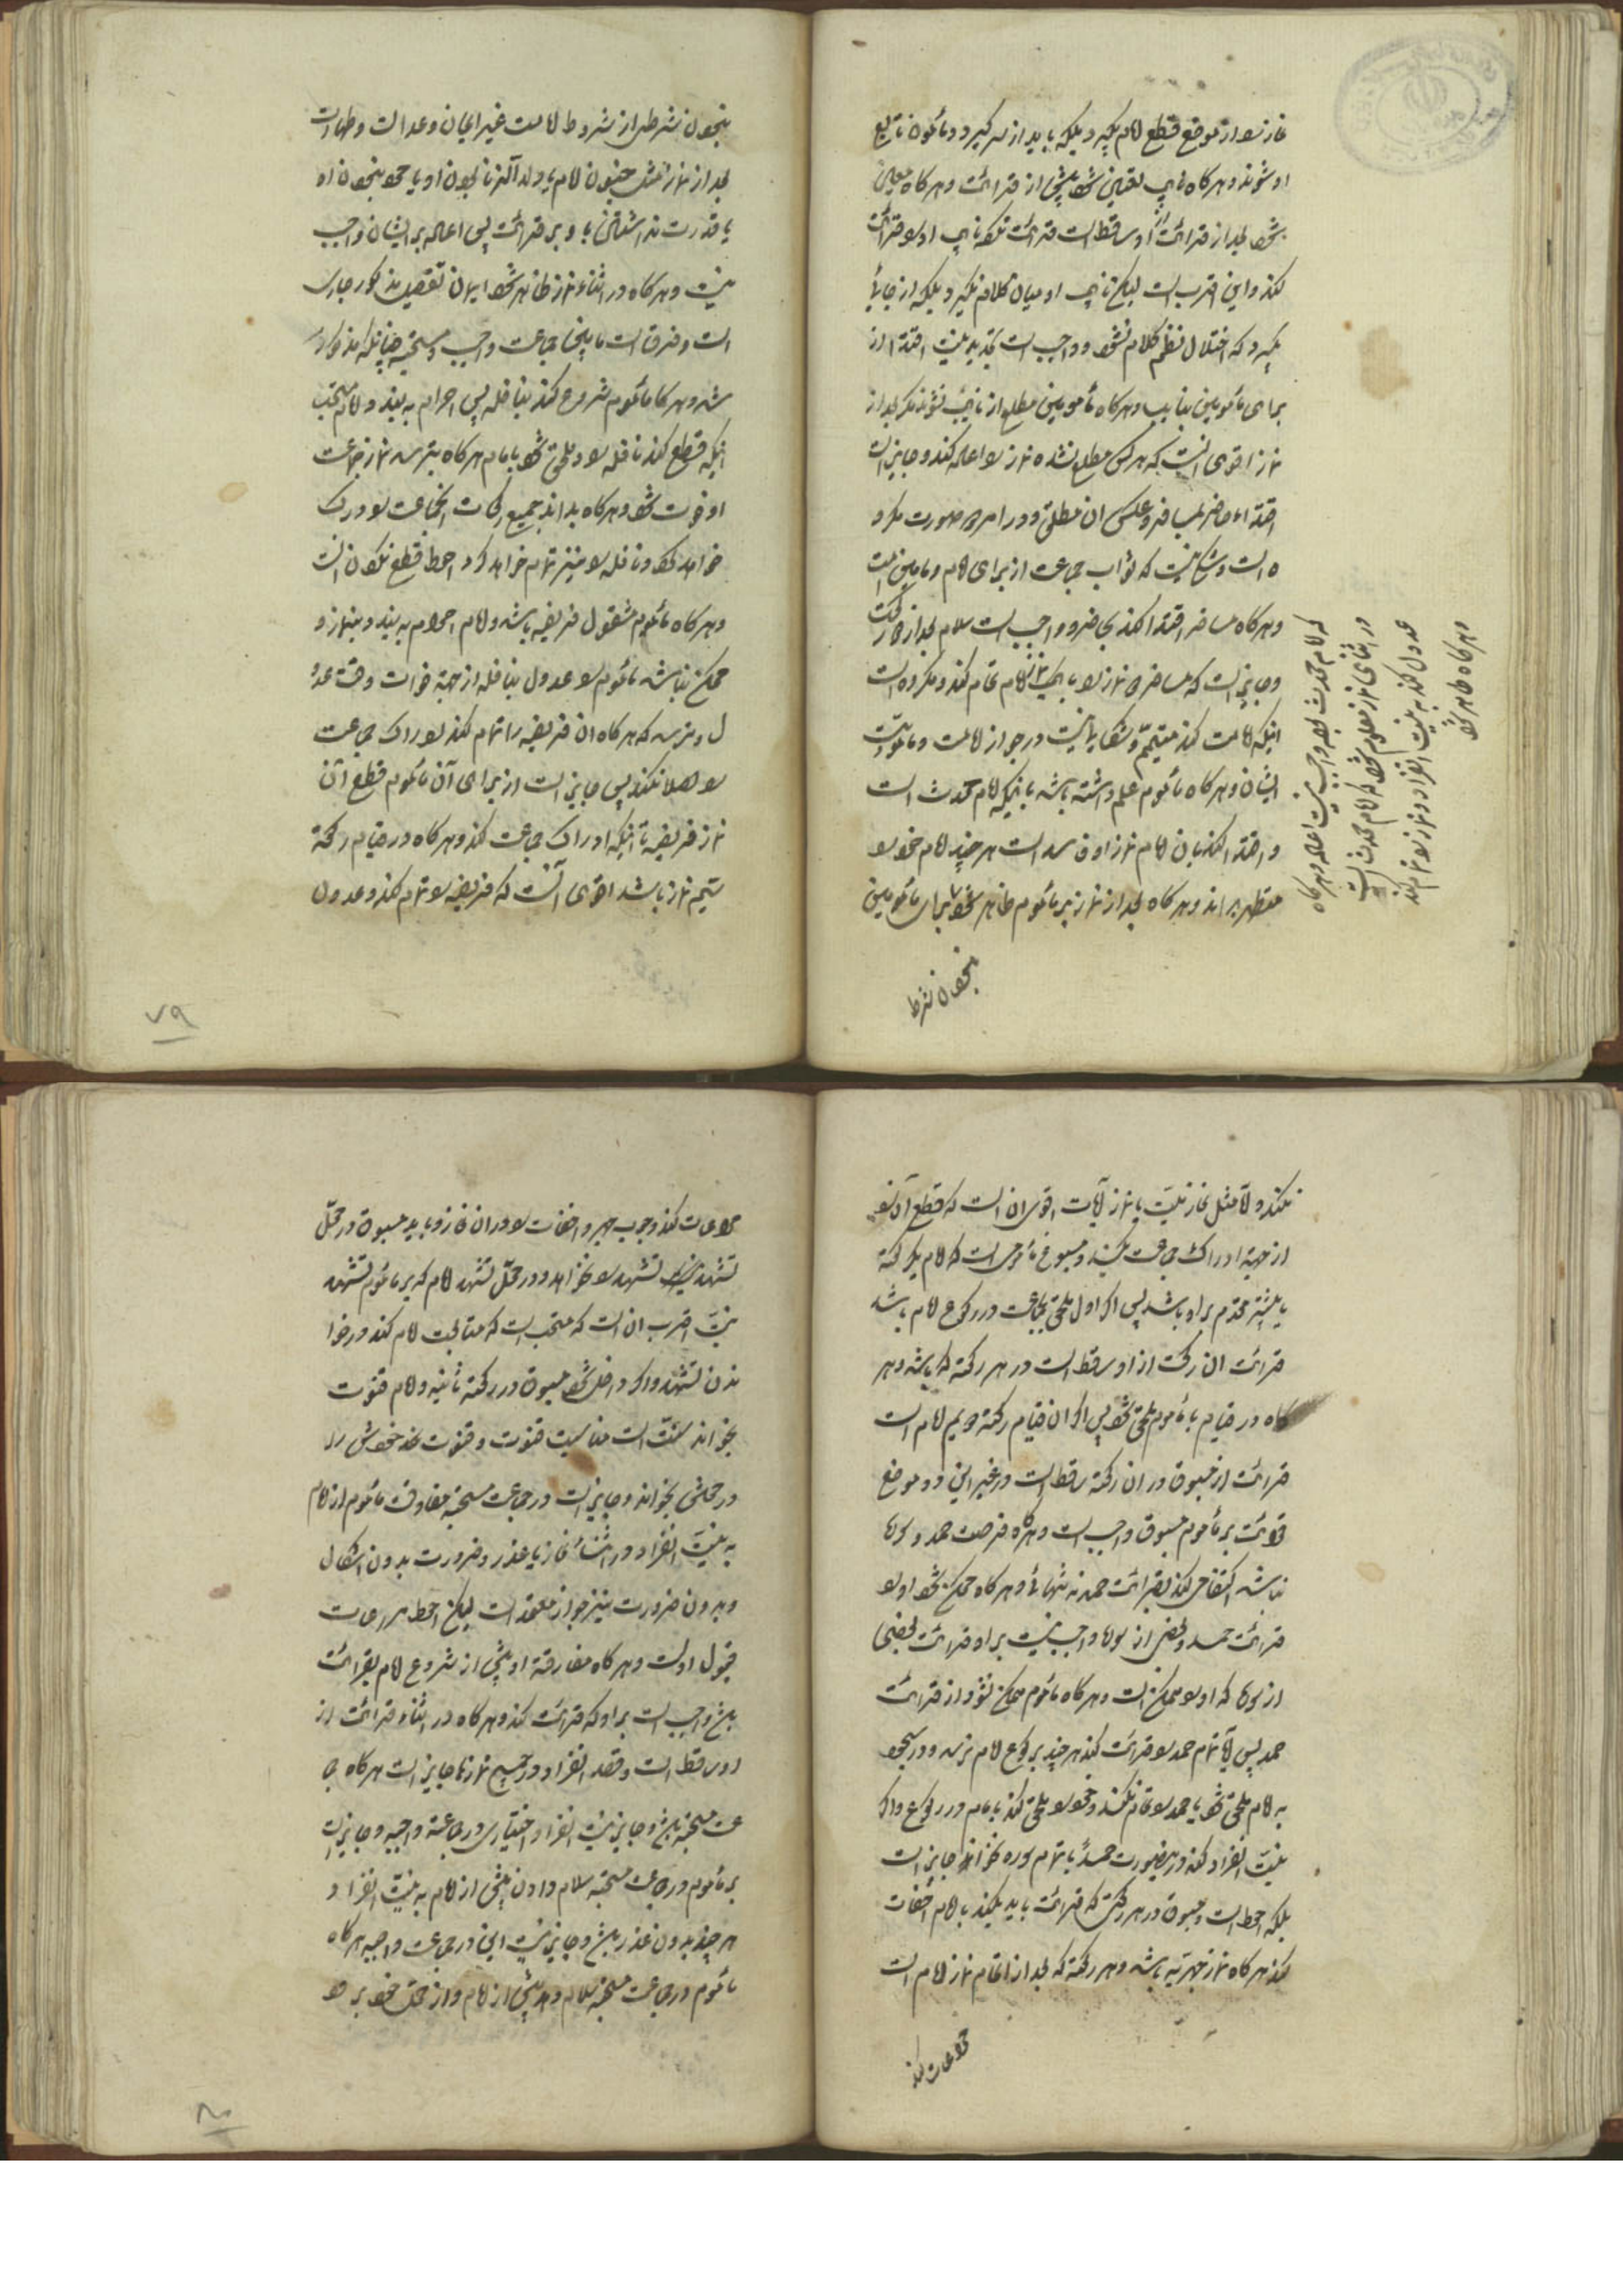 نماز را از موضع قطع امام بگیرد بلکه باید از سر گیرد و مأمون تابع
او شوند و هر کاه نایب تعیین شود پیش از قرائت و هر کاه معین
شود بعد از قرائت او ساقط است قرائت بلکه نایب او را قرائت
کند و این اقرب است لیکن نایب او میان کلام نگیرد بلکه از جائی
بگیرد که اختلال نظم کلام نشود و واجب است تجدید نیت اقتدا از
برای مأمومین بنایب و هر کاه مأمومین مطلع از نایب نشوند مکر بعد از
نماز اقوی انست که هر کس مطلع نشده نماز را اعاده کند و جایز است
اقتداء حاضر بمسافر و عکس ان مطلق و در هر دو صورت مکرو
ه است و شک نیست که ثواب جماعت از برای امام و مأمومین هست
و هر کاه مسافر اقتدا کند بحاضر و واجب است سلام بعد از دو رکعت
و جایز است که مسافر نماز را با نماز امام تمام کند و مکروه است
اینکه امامت کند متیمم و شک نیست در جواز امامت و مأمومیت
ایشان و هر کاه مأموم علم داشته باشد باینکه امام محدث است
و اقتدا کند بان امام نماز او فاسد است هر چند امام خود را
متطهر بداند و هر کاه بعد از نماز بر مأموم ظاهر شود برای مأمومین
که امام محدث بوده واجب نیست اعاده و هر کاه
در اثنای نماز معلوم شود که امام محدث است
عدول کند به نیت انفراد و نماز را تمام کند
و هر کاه ظاهر شود
نبودن شرط
نبودن شرطی از شروط امامت غیر ایمان و عدالت و طهارت
بعد از نماز مثل جنون امام یا ولد الزنا بودن او یا محو نبودن او
یا قدرت نداشتن او بر قرائت پس اعاده بر ایشان واجب
نیست و هر کاه در اثناء نماز ظاهر شود ایران تفصیل مذکور جاری
است و فرق است مابین جماعت واجب و مستحبه چنانکه مذکور
شد و هر کاه مأموم شروع کند بنافله پس احرام به بندد امام مستحب
اینکه قطع کند نافله را و ملحق شود بامام هر کاه بترسد نماز جماعت
او فوت شود و هر کاه بداند جمیع رکعات انجماعت را درک
خواهد کرد و نافله را نیز تمام خواهد کرد احوط قطع نکردن است
و هر کاه مأموم مشغول فریضه باشد و امام احرام به بندد بنماز و
ممکن نباشد مأموم را عدول بنافله از جهة فوات وقت عدو
ل و بترسد که هر کاه ان فریضه را تمام کند ادراک جماعت
را اصلا نکند پس جایز است از برای آن مأموم قطع ان
نماز فریضه تا اینکه ادراک جماعت کند و هر کاه در قیام رکعة
سیم نماز باشد اقوی آنست که فریضه را تمام کند و عدول
نکند و اما مثل نماز میت یا نماز آیات اقوی ان است که قطع آن
از جهة ادراک جماعت نکند و مسبوق مأمومی است که امام یک رکعة
یا بیشتر مقدم بر او باشد پس اکر اول ملحق بجماعت در رکوع امام باشد
قرائت ان رکعت از او ساقط است در هر رکعة که باشد و هر
کاه در قیام با مأموم ملحق شود پس اکر ان قیام رکعة دویم امام است
قرائت از مسبوق در ان رکعة ساقط است و در غیر این دو موضع
قرائت بر مأموم مسبوق واجب است و هر کاه فرصت حمد و سوره
نباشد اکتفا می کند بقرائت حمد به تنهائی و هر کاه ممکن شود او را
قرائت حمد و بعض از سوره واجب نیست بر او قرائت بعضی
از سوره که او را ممکن است و هر کاه مأموم ممکن نشود از قرائت
حمد پس یا تمام حمد را قرائت کند هر چند برکوع امام نرسد و در سجود
به امام ملحق شود یا حمد را تمام نکند و خود را ملحق کند بامام در رکوع و اکر
نیت انفراد کند در اینصورت حمد یا تمام سوره بخواند جایز است
بلکه احوط است و مسبوق در هر رکعتی که قرائت باید بکند باید اخفات
کند هر کاه نماز جهریه باشد و هر رکعة که بعد از اتمام نماز امام است
مراعات کند
مراعات کند وجوب جهر و اخفات را در ان نماز و باید مسبوق در محل
تشهد خود تشهد را بخواند و در محل تشهد امام که بر مأموم تشهد
نیست اقرب ان است که مستحب است که متابعت امام کند در خوا
ندن تشهد و اکر داخل شود مسبوق در رکعة ثانیه و امام قنوت
بخواند سنت است متابعت قنوت و قنوت خود خویش را
در محلش بخواند و جایز است در جماعت مستحبه مفارقت مأموم از امام
به نیت انفراد در اثناء نماز با عذر و ضرورت بدون اشکال
و بدون ضرورت نیز جواز معتمد است لیکن احوط مراعات
قبول اول است و هر کاه مفارقة او پیش از شروع امام بقرائت
باشد واجب است بر او که قرائت کند و هر کاه در اثناء قرائت از
او ساقط است و قصد انفراد در جمیع نمازها جایز است هر کاه جما
عت مستحبه باشد و جایز نیست انفراد اختیاری در جماعة واجبه و جایز است
بر مأموم در جماعت مستحبه سلام دادن پیش از امام به نیت انفراد
هر چند بدون عذر باشد و جایز نیست این در جماعت واجبه هر کاه
مأموم در جماعت مستحبه سلام دهد پیش از امام و از محل خود بر خو
۷۹
۸۰